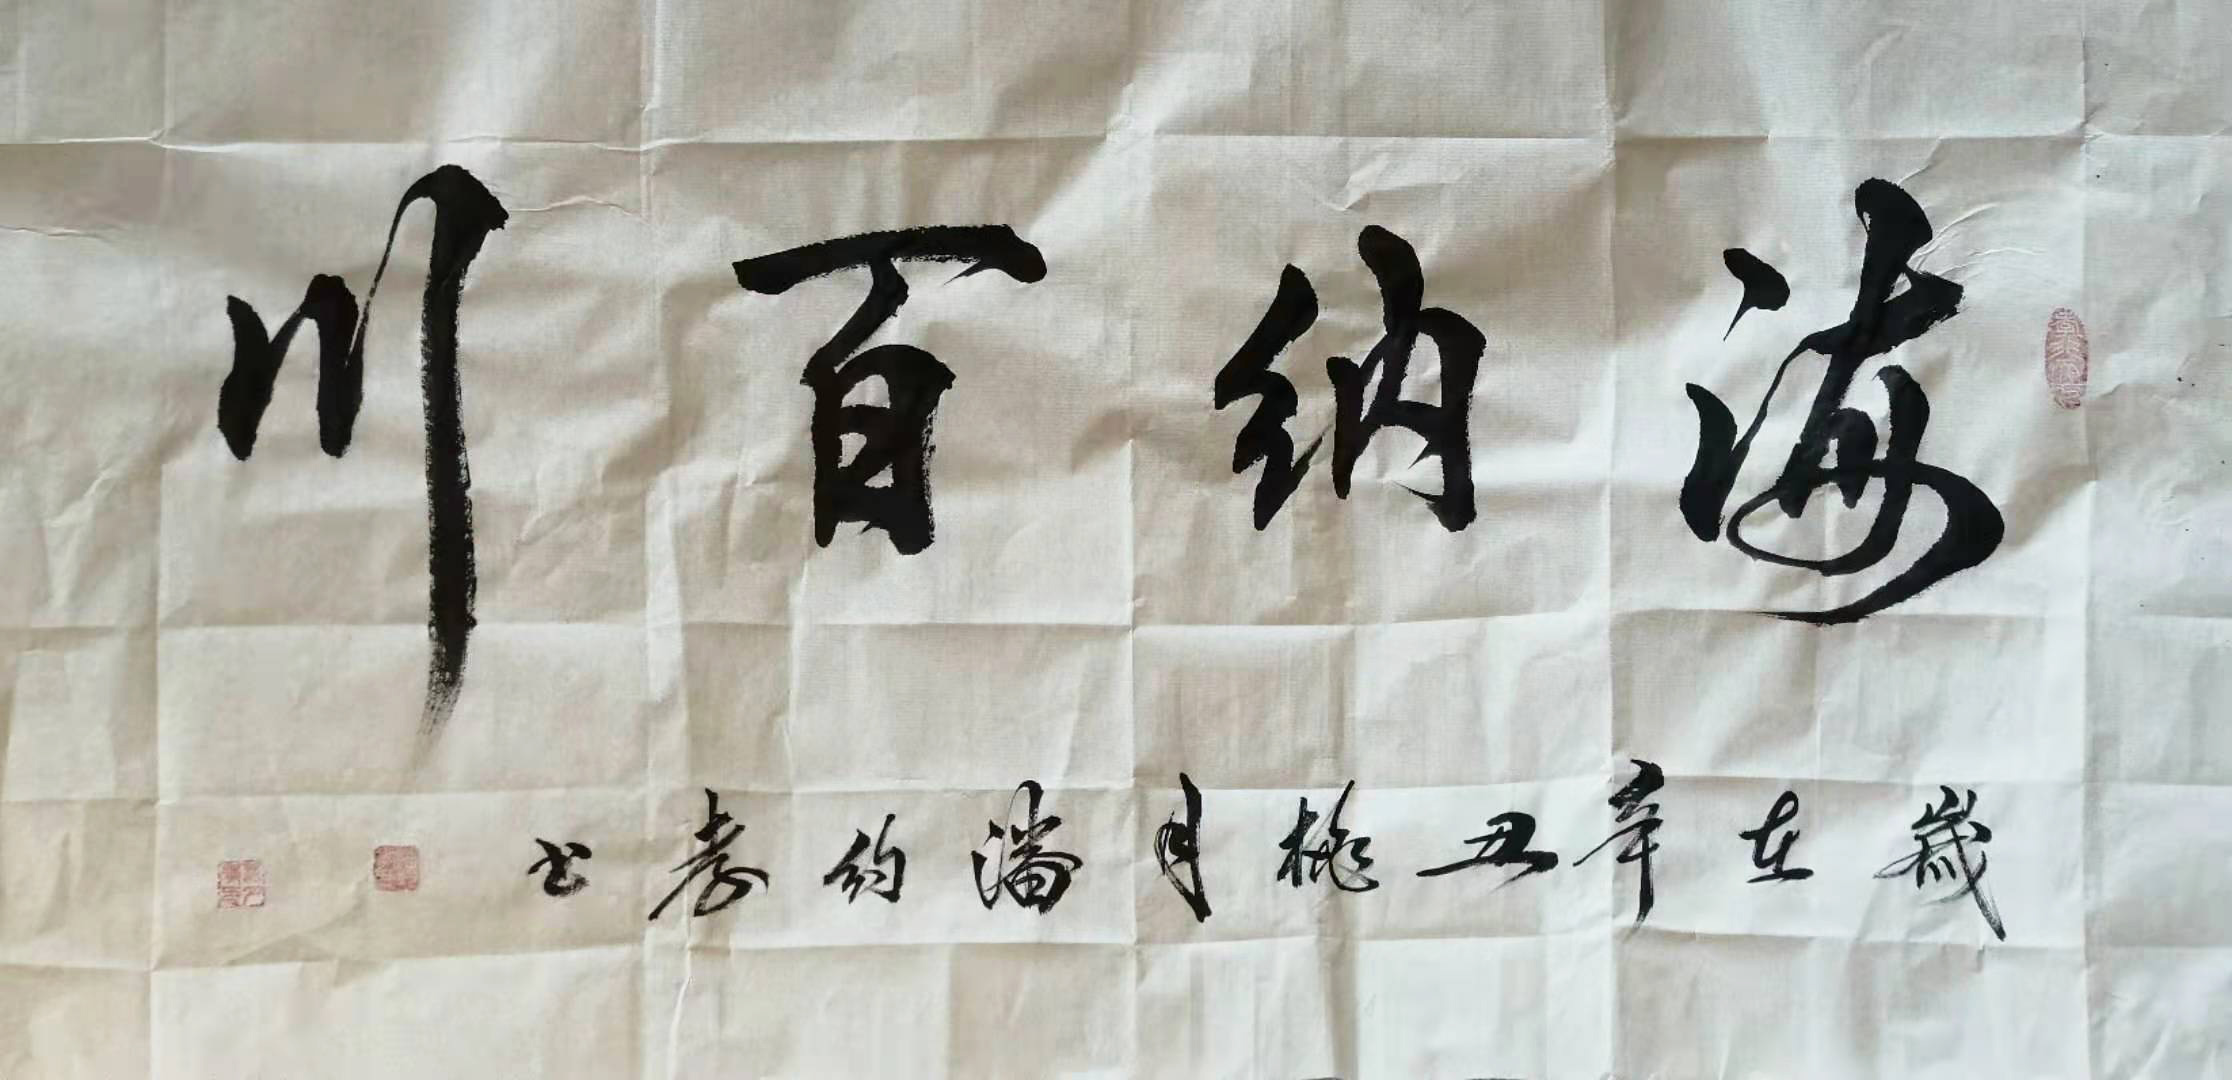 海纳百川
歲在辛丑桃月潘约孝书